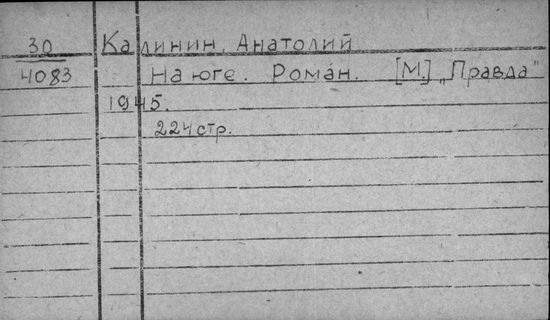 30 Калинин, Анатолий
4083 На юге. Роман. [М.] „Правда"
1945.
224 стр.